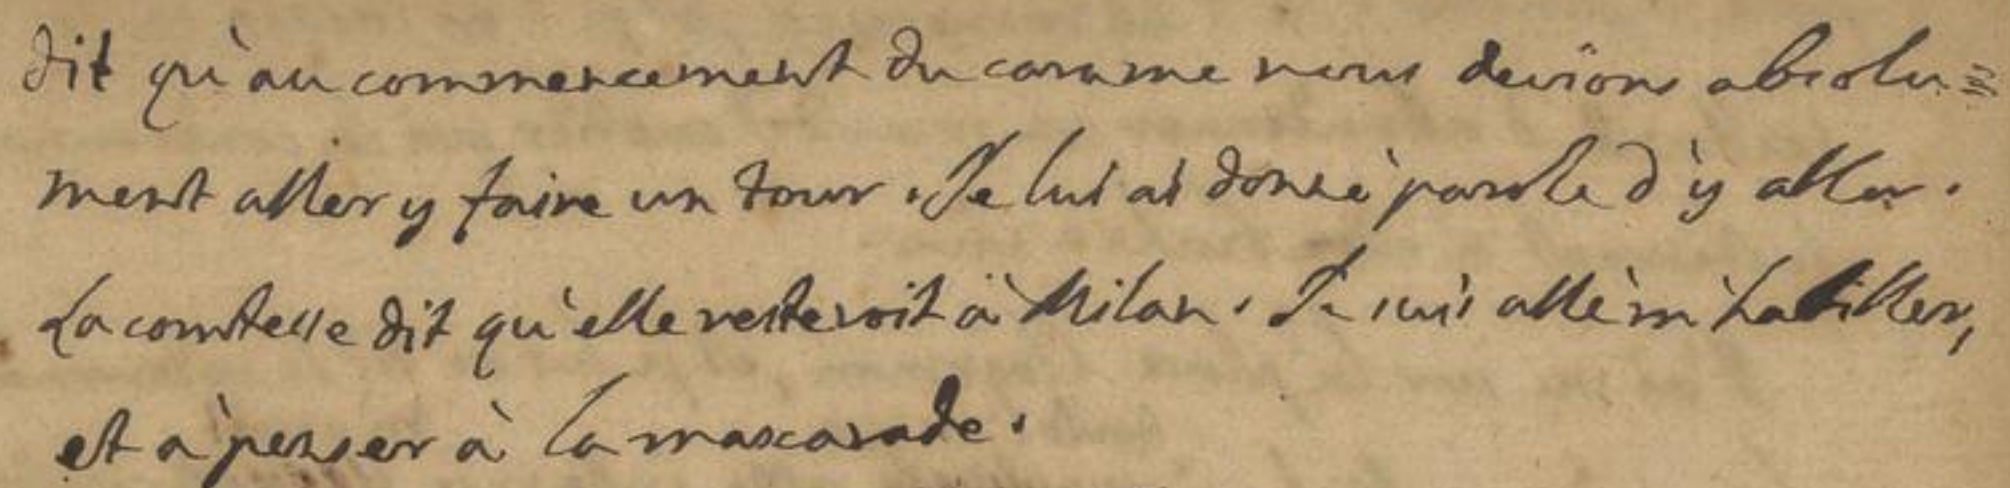 dit qu'au commencement du carame nous devions absolu=
ment aller y faire un tour. Je lui ai donné parole d'y aller.
La comtesse dit qu'elle resteroit à Milan. Je suis allé m'habiller,
et à penser à la mascarade.